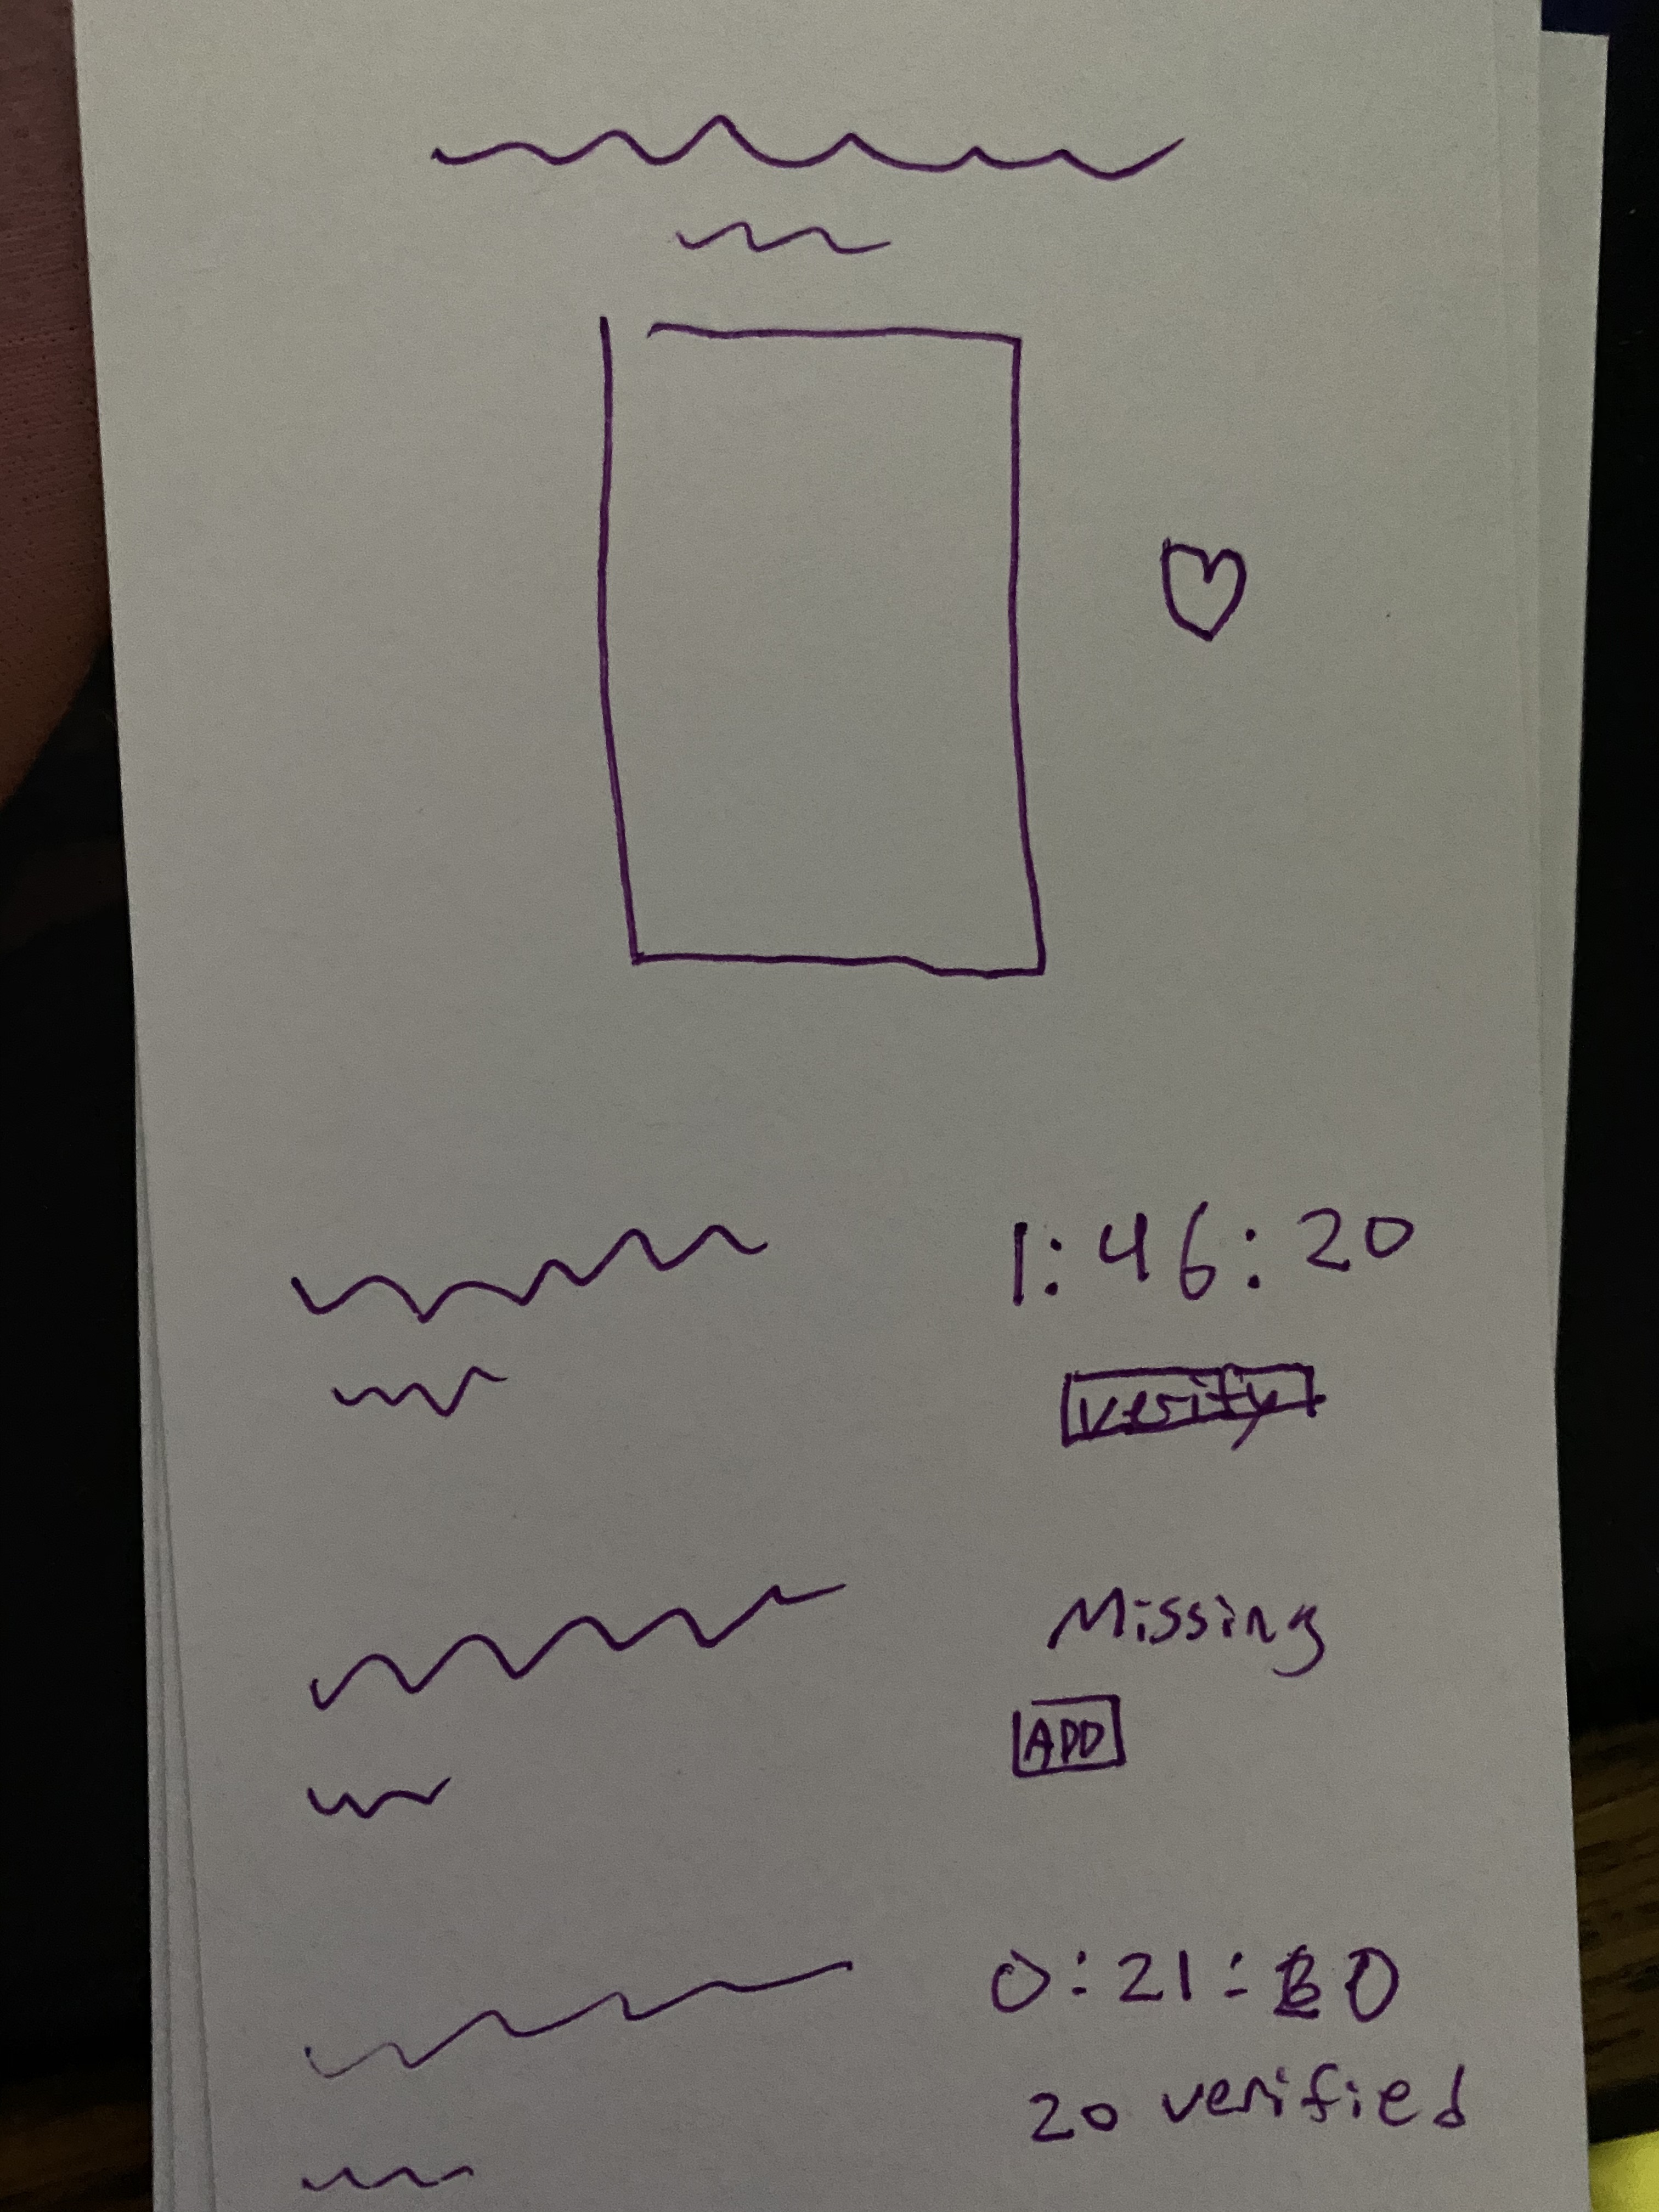 1:46:20
Verify
Missing
ADD
20 verified